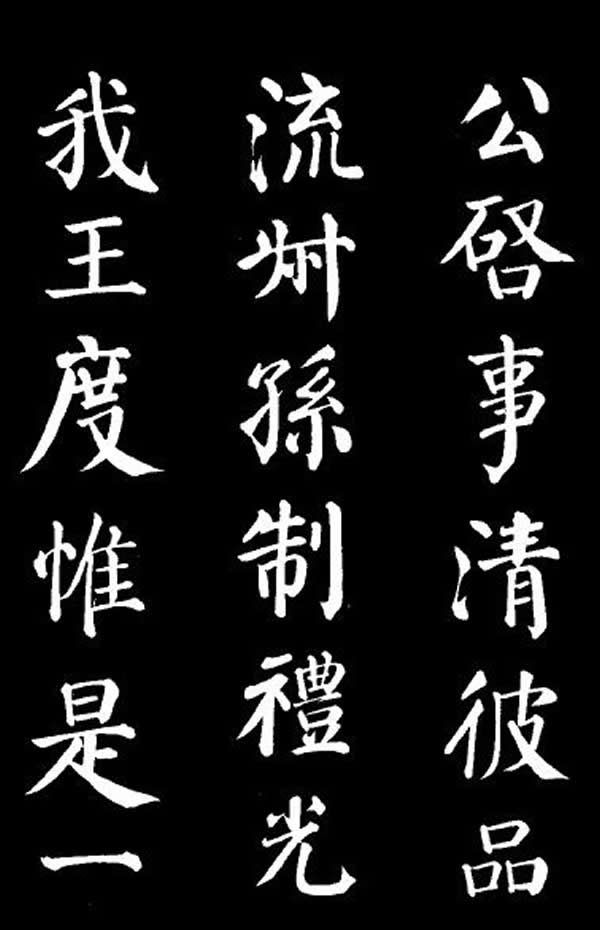 公啓事清彼品
流叔孫制禮光
我王度惟是一